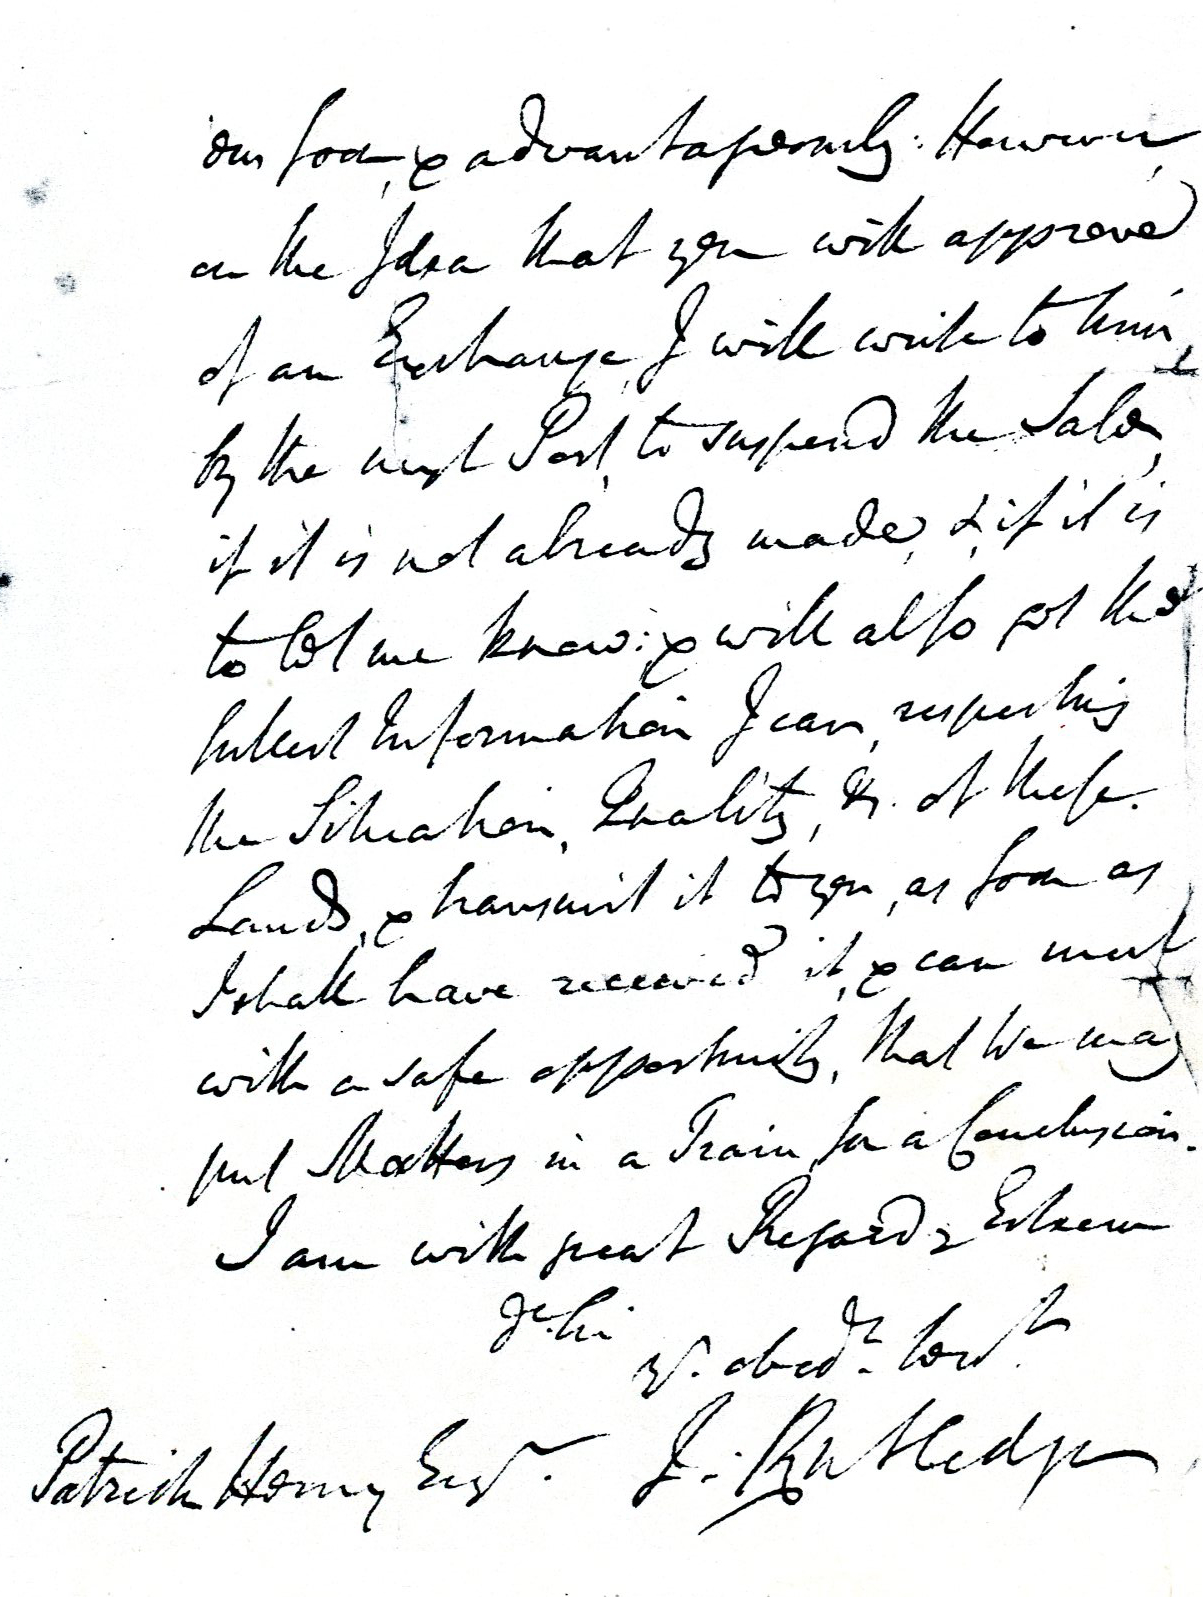 soon, & advantageously. However,
on the Idea that you will approve
of an Exchange, I will write to him,
by the next Post, to suspend the Sale,
if it is not already made, & if it is
to let me know: & will also get the
fullest Information I can, respecting
the Situation, Quality, &c. of these
Lands, & transmit it to you, as soon as
I shall have received it, & can meet
with a safe opportunity, that We may
put Matters in a Train, for a Conclusion.
I am with great Regard & Esteem
Dr. Sir
yr. obedt. Servt.
J: Rutledge
Patrick Henry Esqr.